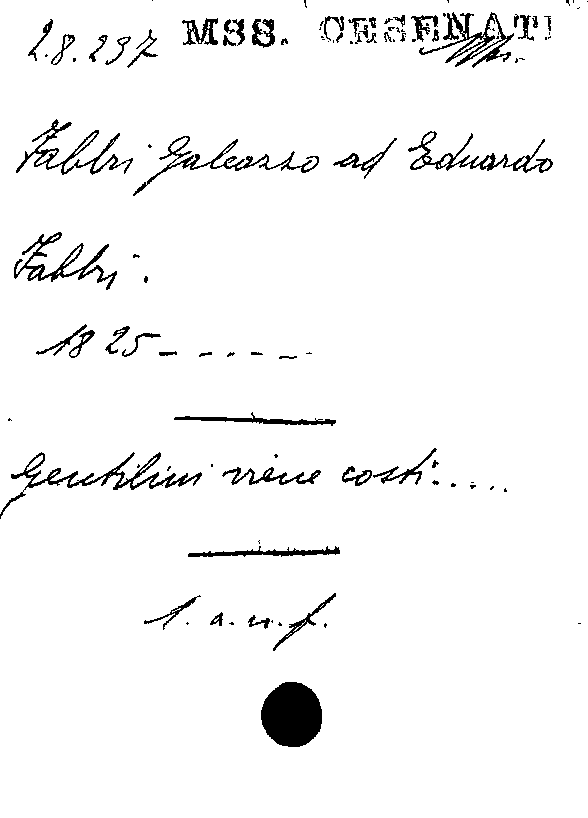 2.8.237 MSS. CESENATI
Fabbri Galeazzo ad Eduardo
Fabbri.
1825 - - . . - - .
Gentilini viene costì.....
1. a. n. f.